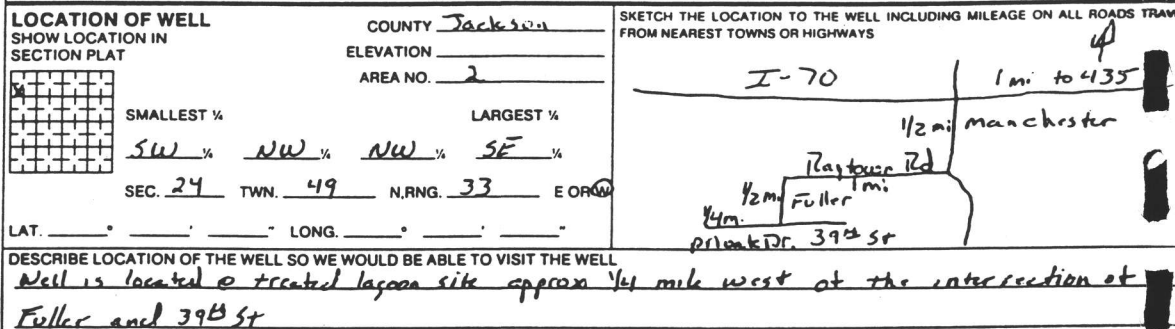 LOCATION OF WELL
SHOW LOCATION IN
SECTION PLAT
COUNTY Jackson
ELEVATION
AREA NO. 2
SMALLEST ¼ LARGEST ¼
SW ¼ NW ¼ NW ¼ SE ¼
SEC. 24 TWN. 49 N,RNG. 33 E OR W
LAT. ° ' " LONG. ° ' "
SKETCH THE LOCATION TO THE WELL INCLUDING MILEAGE ON ALL ROADS TRAV
FROM NEAREST TOWNS OR HIGHWAYS
I-70 1 mi to 435
1/2 mi Manchester
Raytown Rd
1 mi
1/2 m. Fuller
1/4 m.
Private Dr. 39th St
DESCRIBE LOCATION OF THE WELL SO WE WOULD BE ABLE TO VISIT THE WELL
Well is located @ treated lagoon site approx 1/4 mile west of the intersection of
Fuller and 39th St